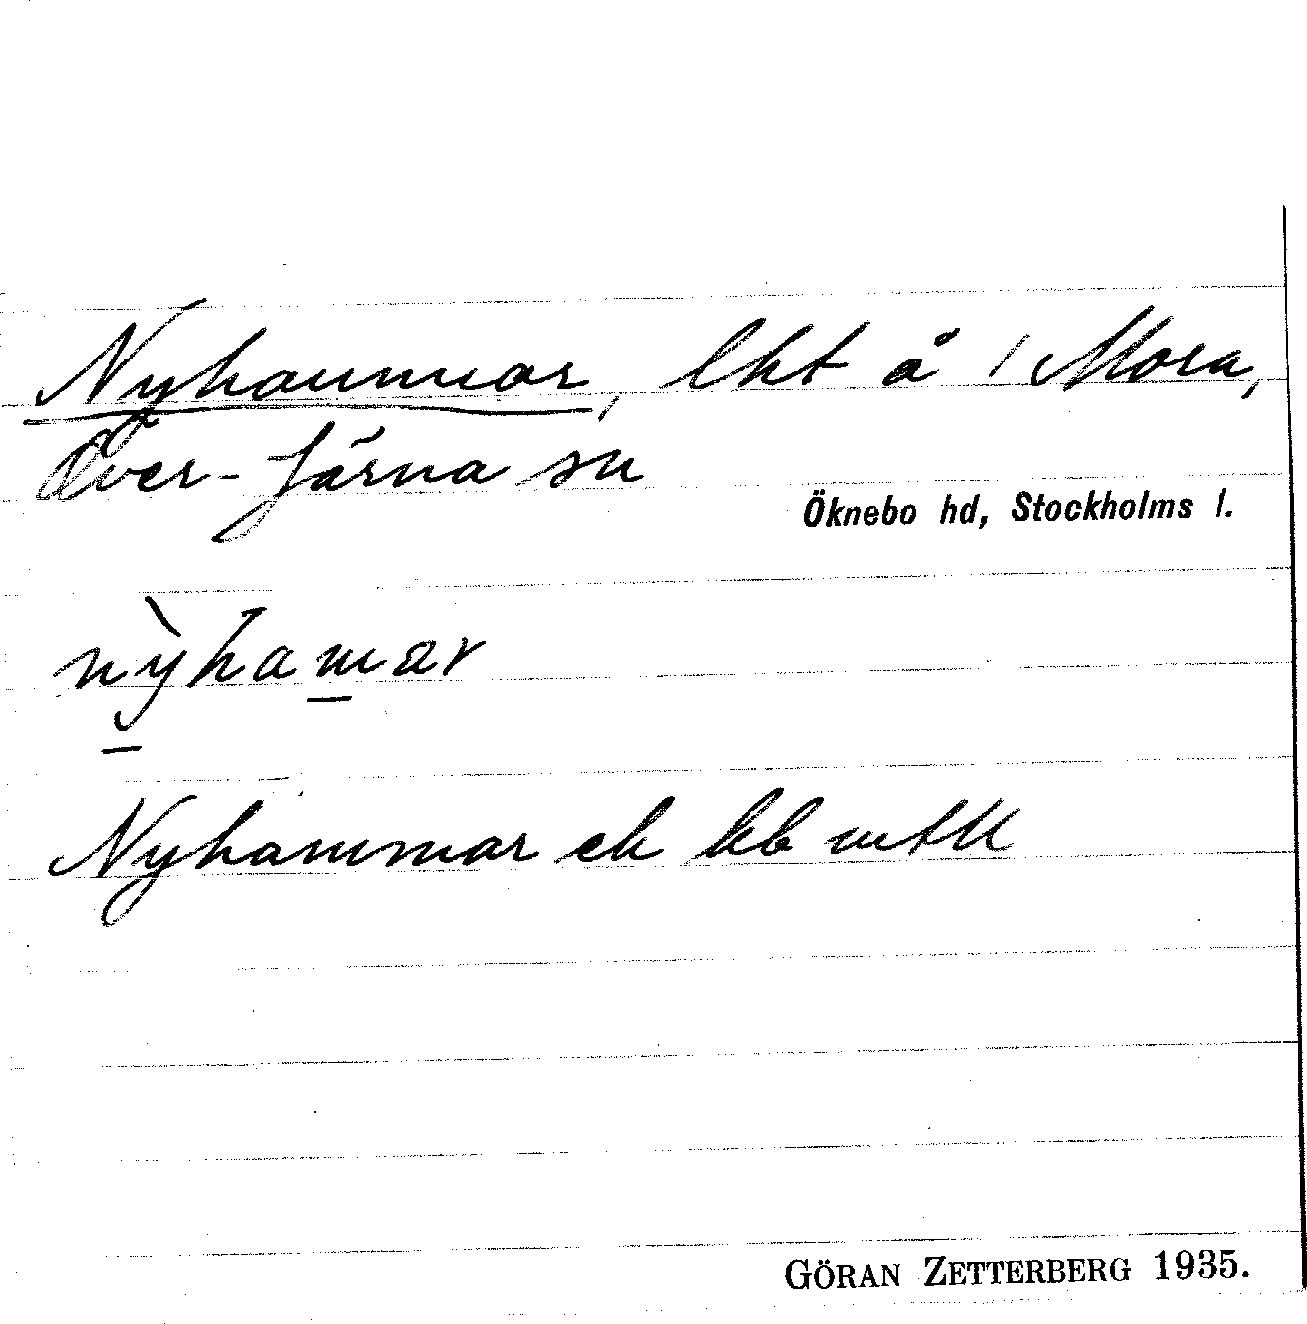 Nyhammar, lht å 1 Mora,
Över-Järna sn
Öknebo hd, Stockholms l.
nỳhamar
Nyhammar ek kb
GÖRAN ZETTERBERG 1935.